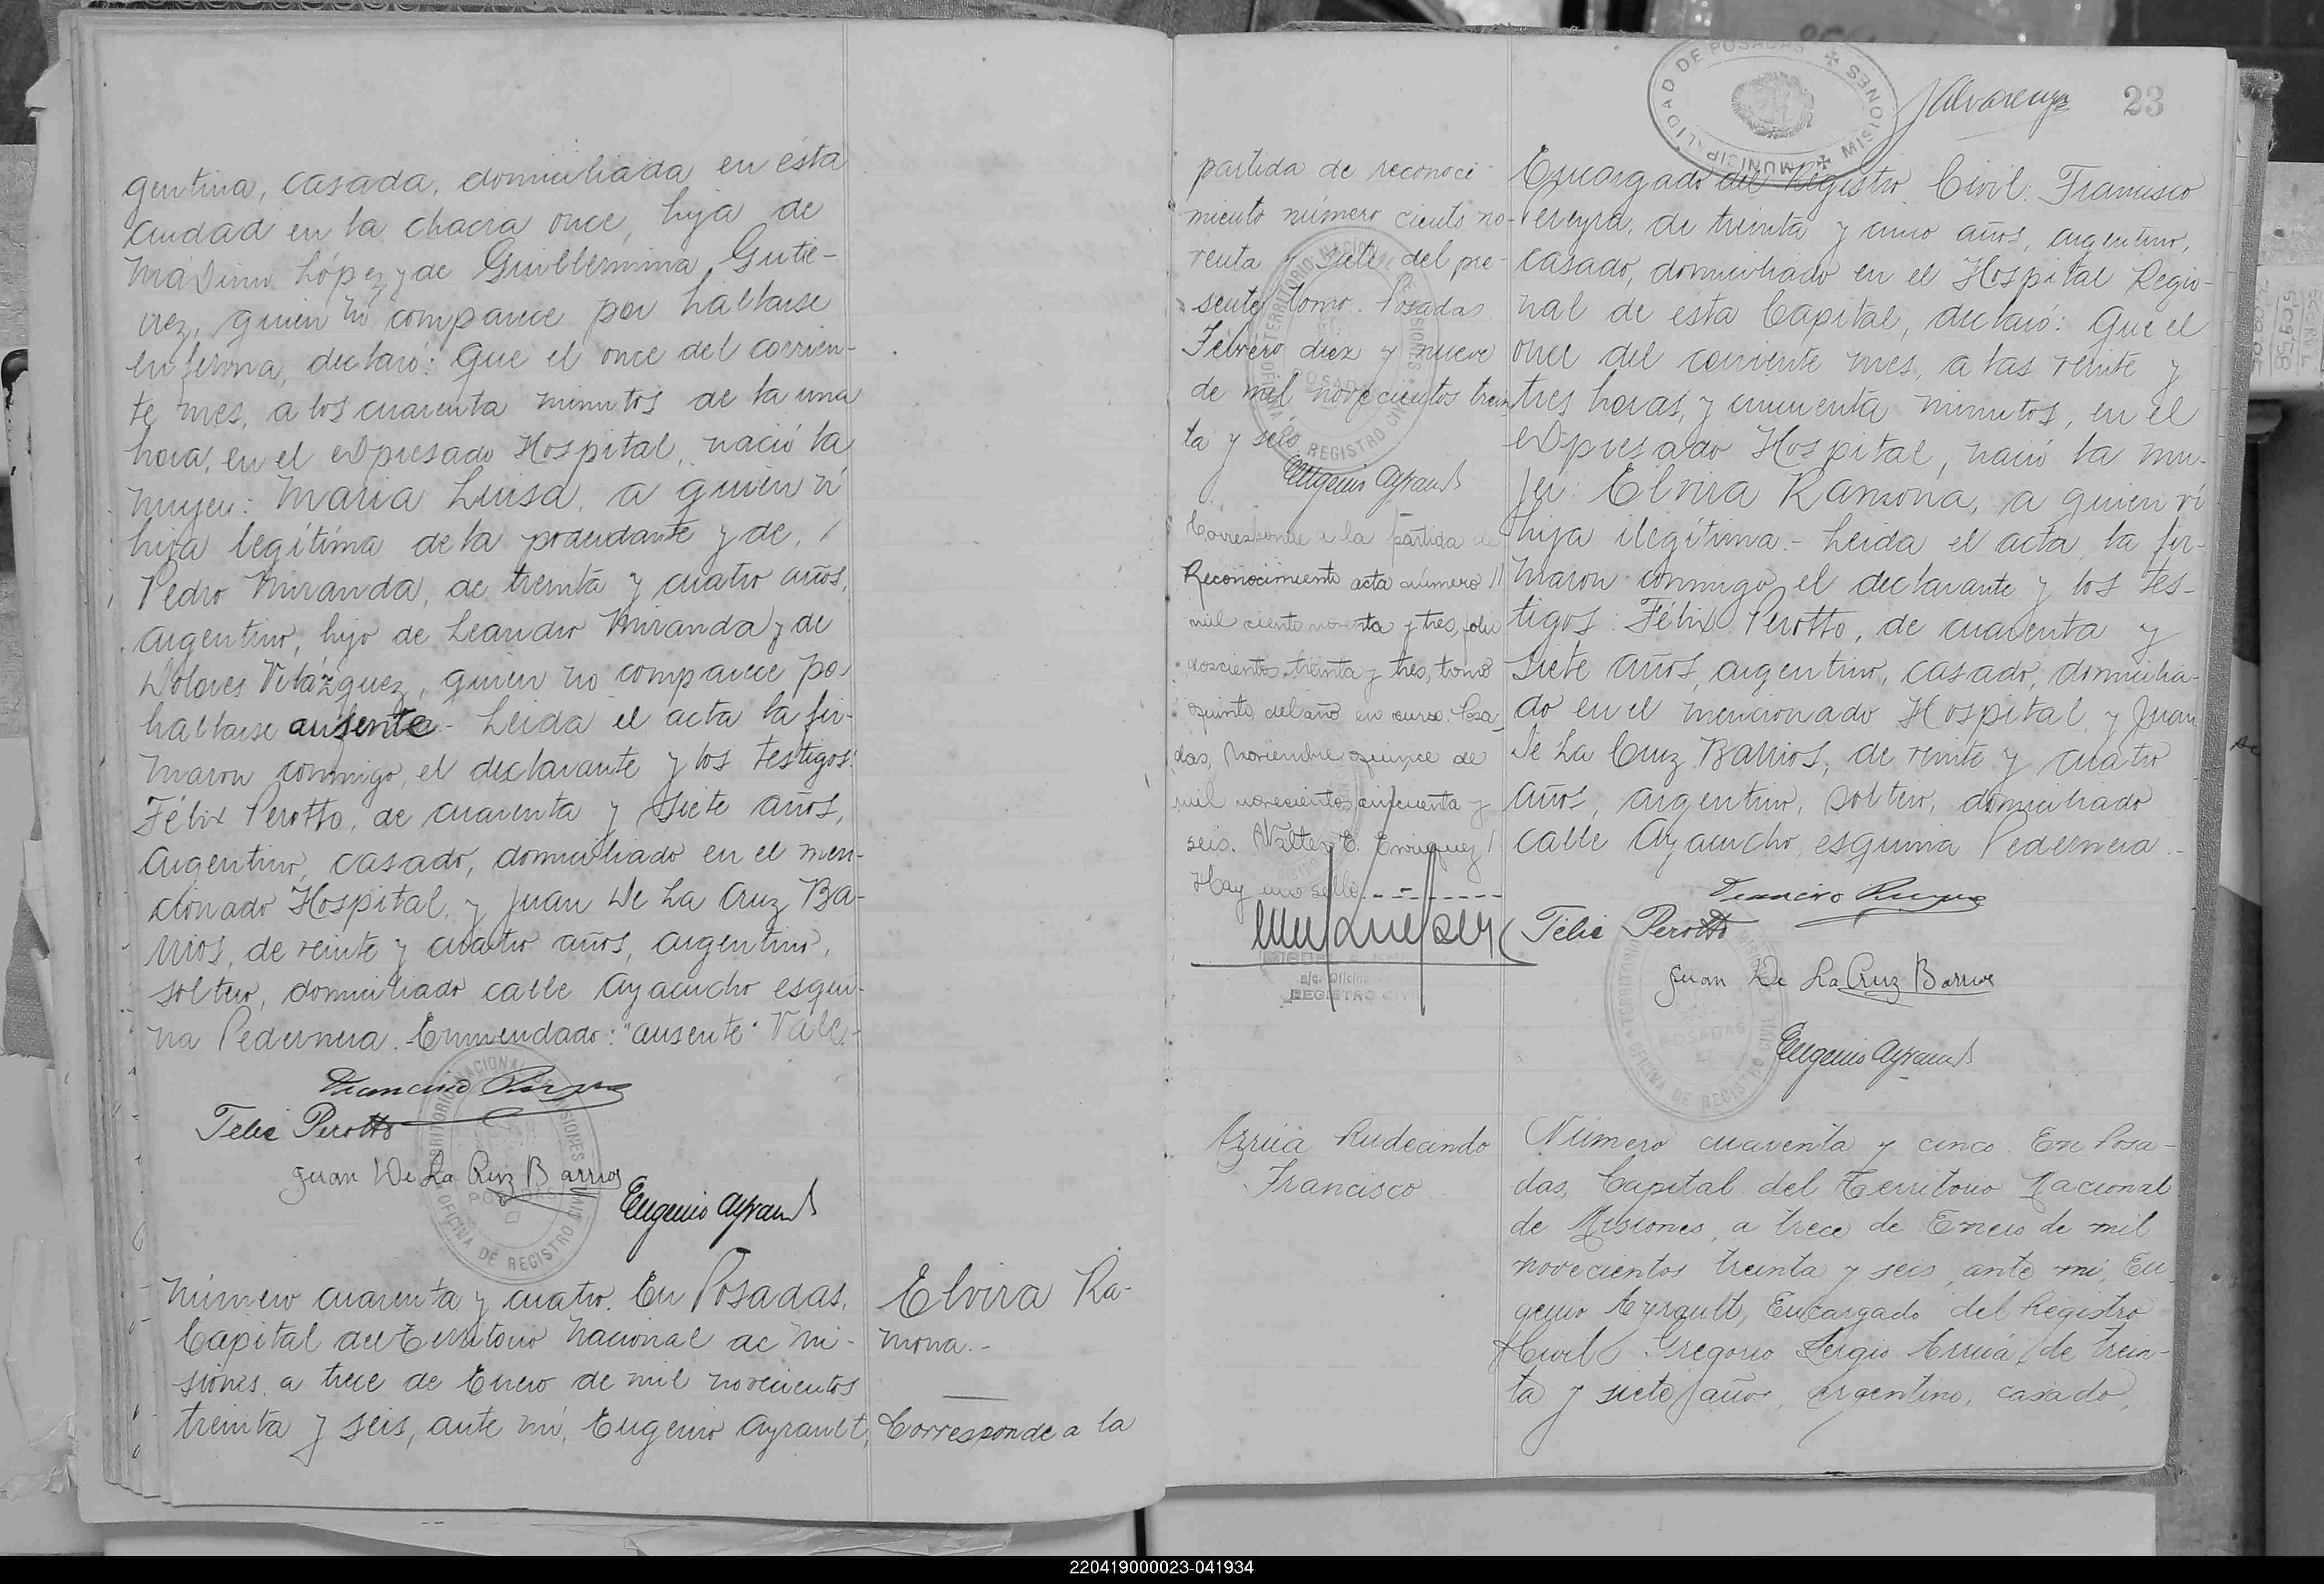 gentina, casada, domiciliada en ésta
ciudad en la chacra once, hija de
Máximo López y de Guillermina Gutié-
rrez, quien no comparece por hallarse
enferma, declaró: Que el once del corrien-
te mes, a los cuarenta minutos de la una
hora, en el expresado Hospital, nació la
mujer: Maria Luisa, a quien ví
hija legítima de la poderdante y de,
Pedro Miranda, de treinta y cuatro años,
argentino, hijo de Leandro Miranda y de
Dolores Velázquez, quien no comparece por
hallarse ausente.- Leida el acta la fir-
maron conmigo, el declarante y los testigos:
Félix Perotto, de cuarenta y siete años,
argentino, casado, domiciliado en el men-
cionado Hospital, y Juan De La Cruz Ba-
rrios, de veinte y cuatro años, argentino,
soltero, domiciliado calle Ayacucho esqui-
na Pedernera.- Enmendado: "ausente" Vale.-
Felix Perotto
Juan De La Cruz Barrios
Eugenio Ayrault
Número cuarenta y cuatro. En Posadas,
Capital del Territorio Nacional de Mi-
siones, a trece de Enero de mil novecientos
treinta y seis, ante mí, Eugenio Ayrault,
Elvira Ra-
mona.-
Corresponde a la
partida de reconoci-
miento número ciento no-
venta y siete del pre-
sente tomo. Posadas
Febrero diez y nueve
de mil novecientos trein
ta y seis
Eugenio Ayrault
Corresponde a la partida de
Reconocimiento acta número
mil ciento noventa y tres, folio
doscientos treinta y tres, tomo
quinto del año en curso. Posa-
das, Noviembre quince de
mil novecientos cincuenta y
seis. Walter E. Enriquez
Hay un sello.
REGISTRO CIVIL
MUNICIPALIDAD DE POSADAS MISIONES
23
Encargado del Registro Civil: Francisco
Pereyra, de treinta y cinco años, argentino,
casado, domiciliado en el Hospital Regio-
nal de esta Capital, declaró: Que el
once del corriente mes, a las veinte y
tres horas, y cincuenta minutos, en el
expresado Hospital, nació la mu-
jer: Elvira Ramona, a quien ví
hija ilegítima.- Leida el acta, la fir-
maron conmigo, el declarante y los tes-
tigos: Félix Perotto, de cuarenta y
siete años, argentino, casado, domicilia-
do en el mencionado Hospital, y Juan
De La Cruz Barrios, de veinte y cuatro
años, argentino, soltero, domiciliado
calle Ayacucho, esquina Pedernera.-
Felix Perotto
Juan De La Cruz Barrios
Eugenio Ayrault
Arrúa Rudecindo
Francisco
Número cuarenta y cinco. En Posa-
das, Capital del Territorio Nacional
de Misiones, a trece de Enero de mil
novecientos treinta y seis, ante mi, Eu
genio Ayrault, Encargado del Registro
Civil: Gregorio Sergio Arrúa, de trein-
ta y siete años, argentino, casado,
220419000023-041934